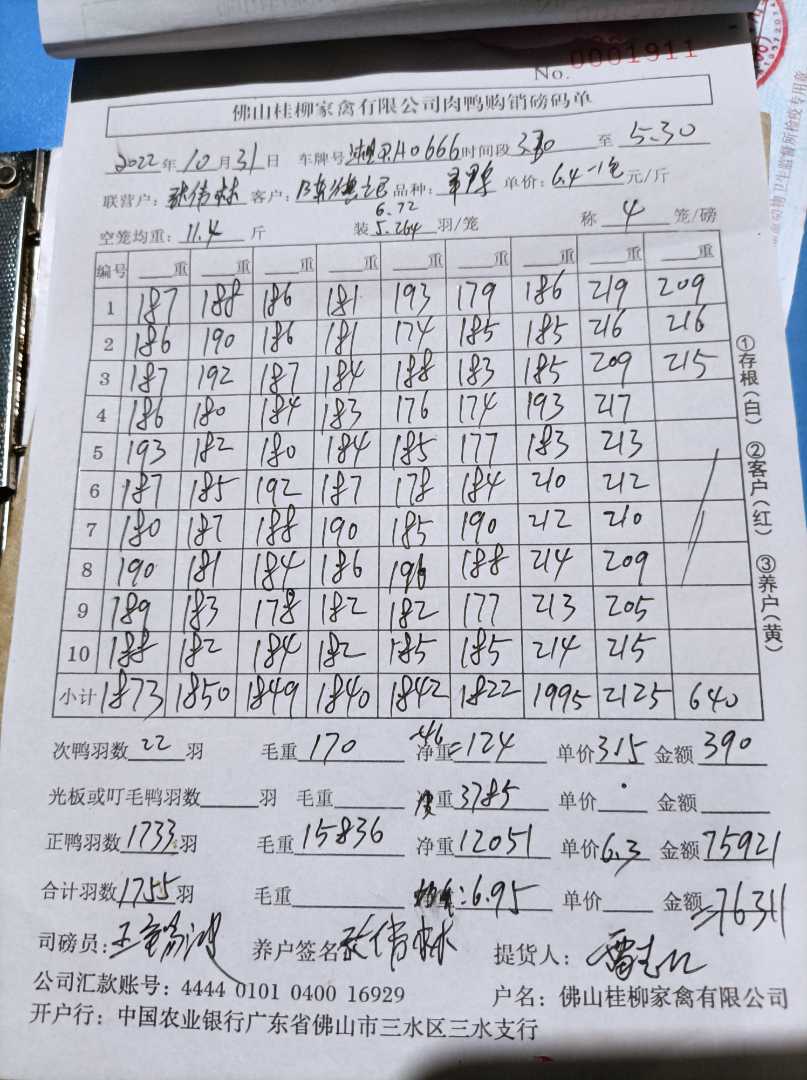 No. 0001911
佛山桂柳家禽有限公司肉鸭购销磅码单
2022年10月31日 车牌号 A0666 时间段 3.30 至 5.30
联营户：张伟林 客户： 品种： 单价：6.4-1包 元/斤
6.72
空笼均重：11.4 斤 装5.264羽/笼 称 4 笼/磅
编号 重 重 重 重 重 重 重 重 重
1 187 188 186 181 193 179 186 219 209
2 186 190 186 181 174 185 185 216 216
3 187 192 187 184 188 183 185 209 215
4 186 180 184 183 176 174 193 217
5 193 182 180 184 185 177 183 213
6 187 185 192 187 178 184 210 212
7 180 187 188 190 185 190 212 210
8 190 181 184 186 196 188 214 209
9 189 183 178 182 182 177 213 205
10 188 182 184 182 185 185 214 215
小计 1873 1850 1849 1840 1842 1822 1995 2125 640
①存根(白) ②客户(红) ③养户(黄)
次鸭羽数22羽 毛重170 -46 净重=124 单价3.15 金额390
光板或叮毛鸭羽数 羽 毛重 重3785 单价 金额
正鸭羽数1733羽 毛重15836 净重12051 单价6.3 金额75921
合计羽数1755羽 毛重 :6.95 单价 金额=76311
司磅员： 养户签名 张伟林 提货人：
公司汇款账号：4444 0101 0400 16929 户名：佛山桂柳家禽有限公司
开户行：中国农业银行广东省佛山市三水区三水支行